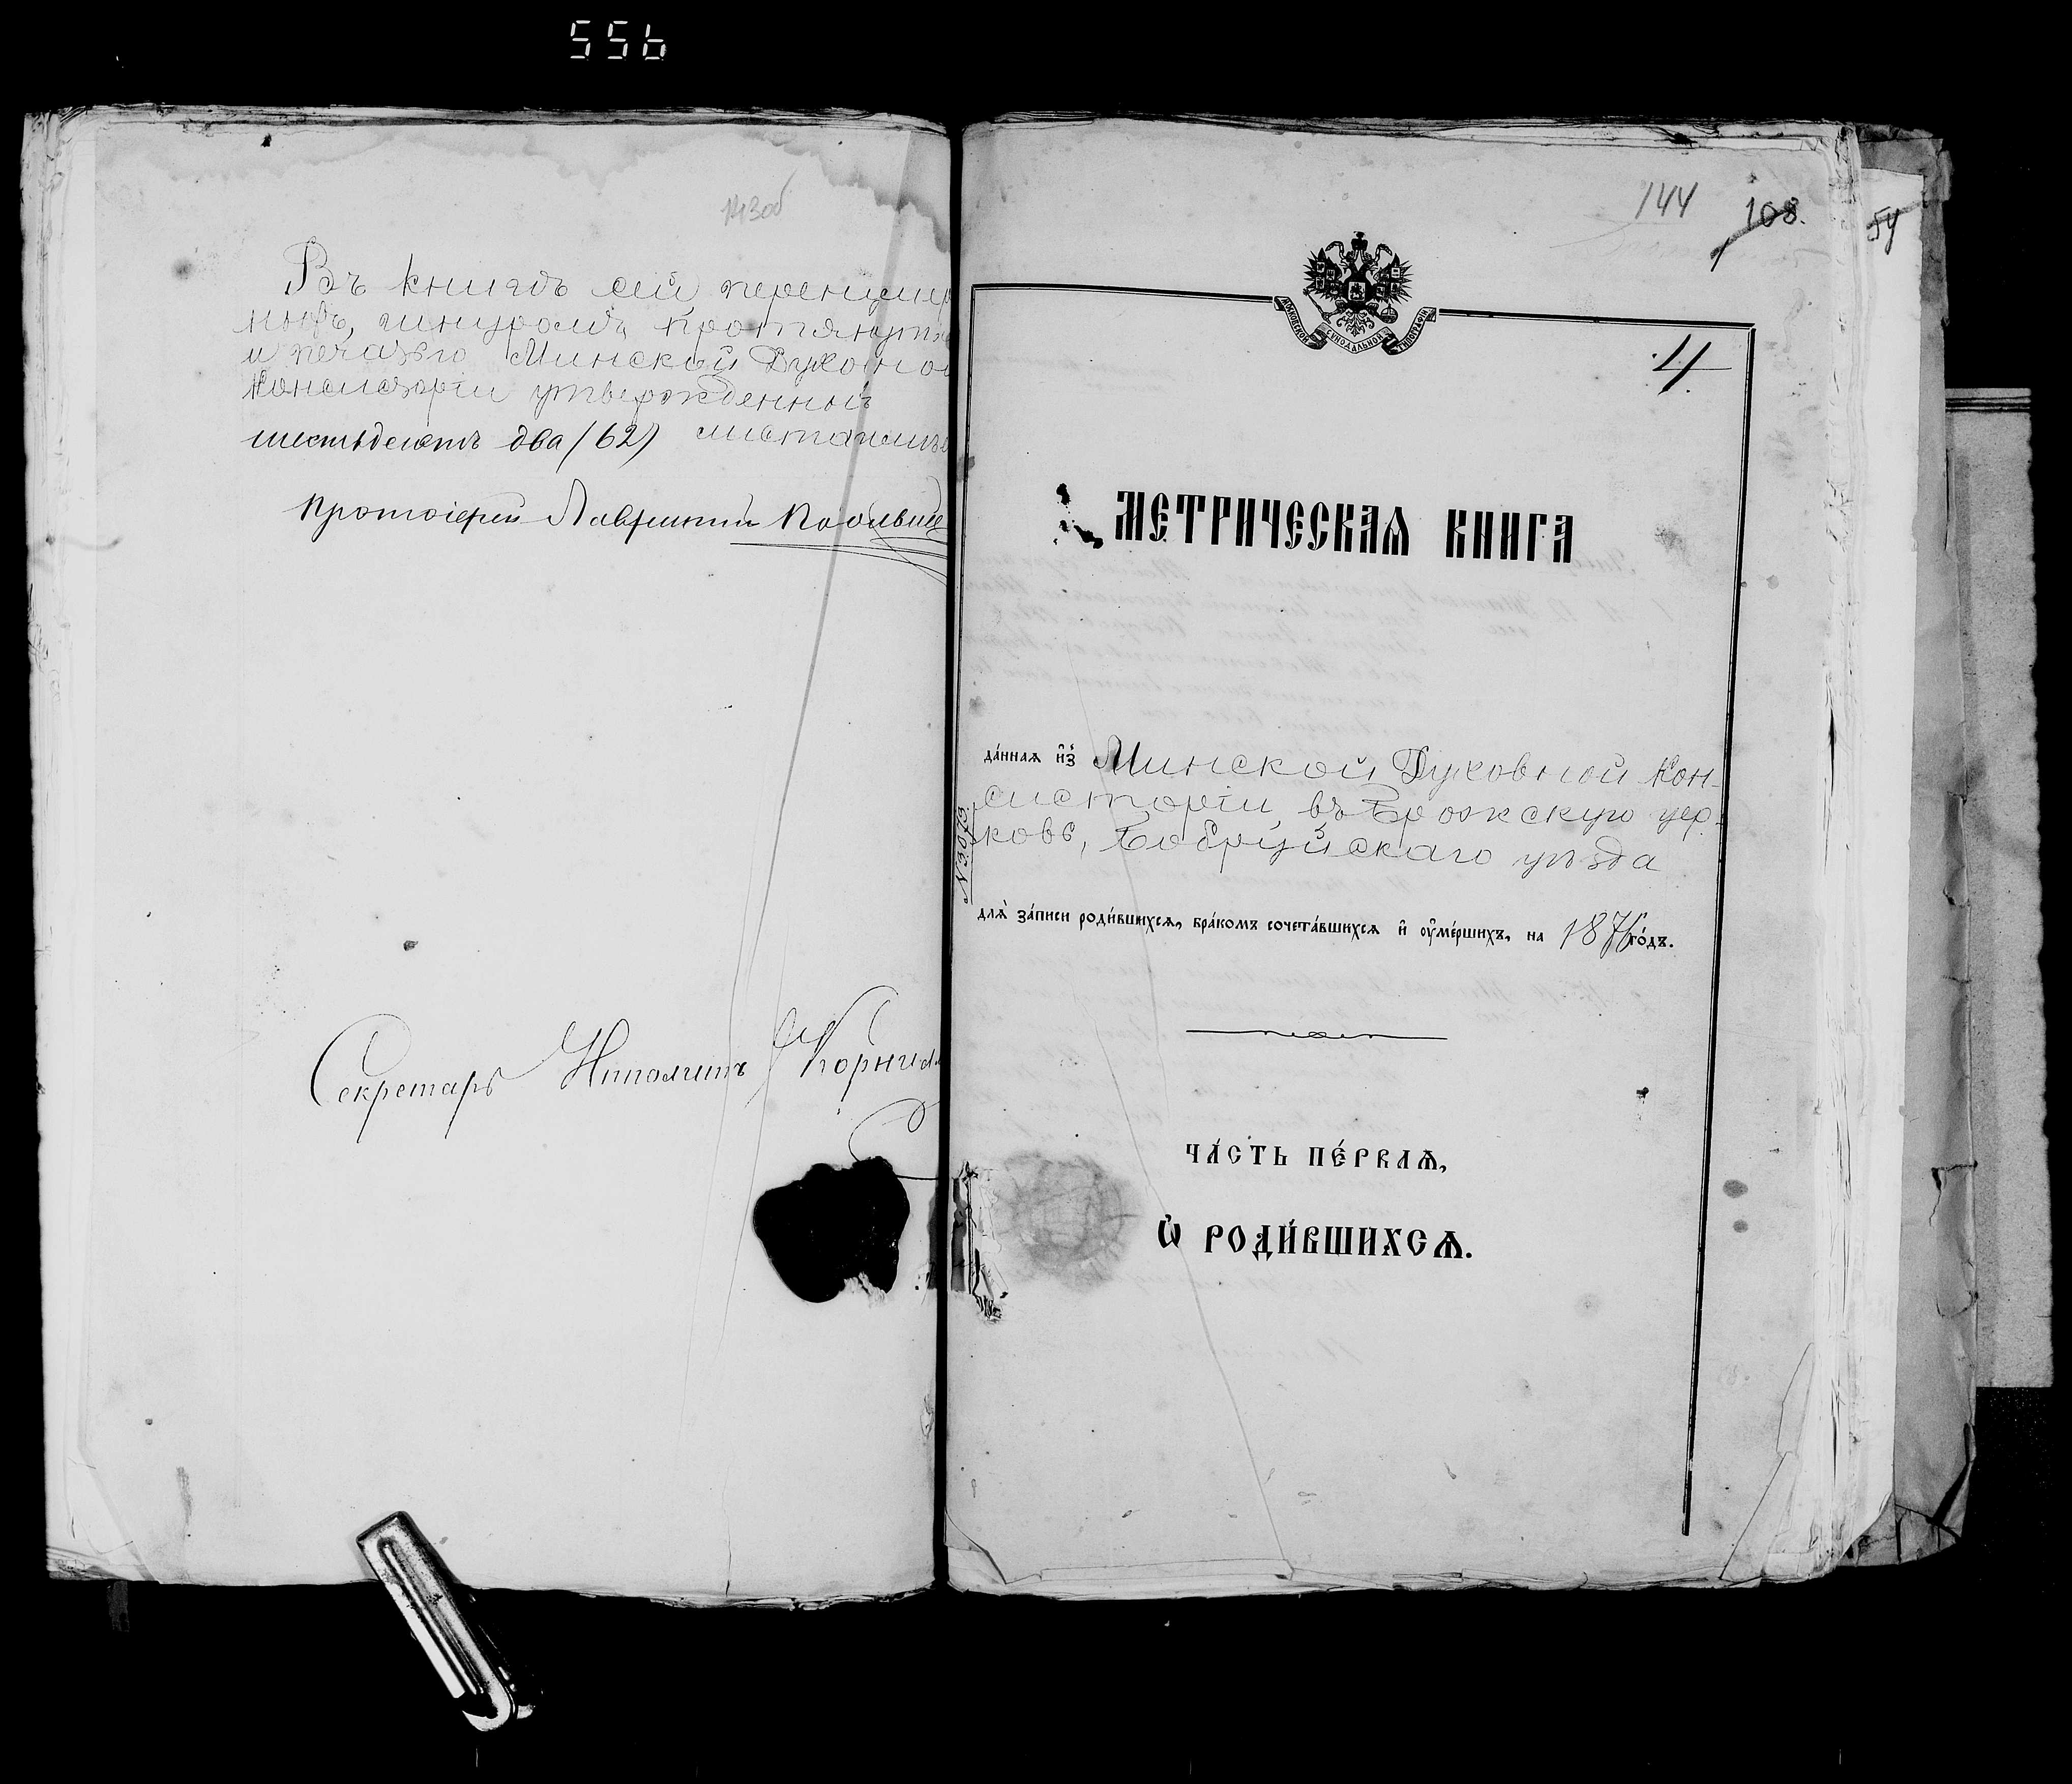 556
143об
Въ книгѣ сей перенумер
шнуромъ протянут
и печатью Минской Духовно
Консисторіи утвержденной
шестьдесятъ два (62)
Протоіерей Лаврентій
Секретарь Ипполитъ
144 108. 54
МОСКОВСКОЙ СѴНОДАЛЬНОЙ ТИПОГРАФІИ
4
МЕТРИЧЕСКАѦ КНИГА
да́ннаѧ и҆з̾ Минской Духовной Кон-
систоріи въ Брожскую цер-
ковь, Бобруйскаго уѣзда
длѧ̀ за́писи роди́вшихсѧ, бра́комъ сочета́вшихсѧ и҆ ᲂу҆ме́ршихъ, на 1876 го́дъ.
ЧА́СТЬ ПЕ́РВАѦ,
Ѡ҆ РОДИ́ВШИХСѦ.